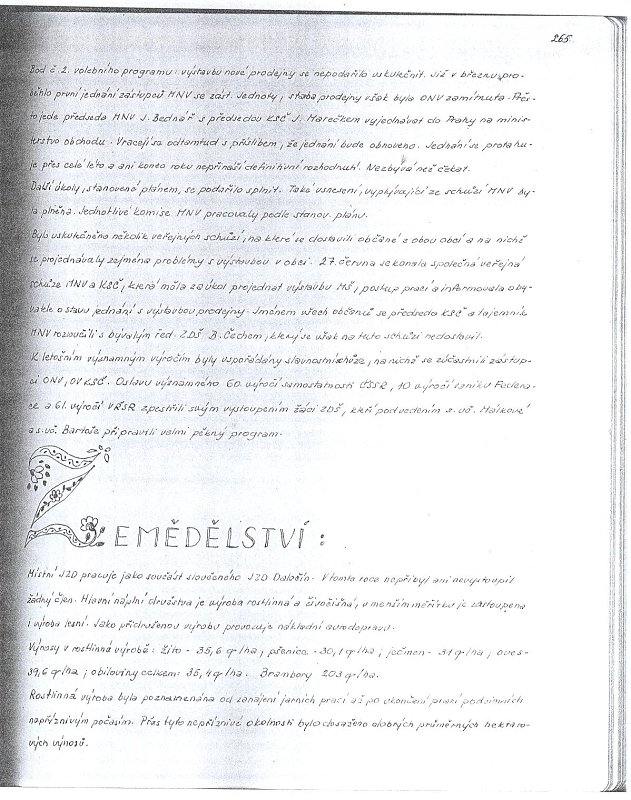 265
Bod č. 2. volebního programu: výstavbu nové prodejny se nepodařilo uskutečnit. Již v březnu pro-
běhlo první jednání zástupců MNV se zást. Jednoty, stavba prodejny však byla ONV zamítnuta. Přes-
to jede předseda MNV J. Bednář s předsedou KSČ J. Marečkem vyjednávat do Prahy na minis-
terstvo obchodu. Vracejí se odtamtud s příslibem, že jednání bude obnoveno. Jednání se protahu-
je přes celé léto a ani konec roku nepřináší definitivní rozhodnutí. Nezbývá než čekat.
Další úkoly, stanovené plánem, se podařilo splnit. Také usnesení, vyplývající ze schůzí MNV by-
la plněna. Jednotlivé komise MNV pracovaly podle stanov. plánu.
Bylo uskutečněno několik veřejných schůzí, na které se dostavili občané z obou obcí a na nichž
se projednávaly zejména problémy s výstavbou v obci. 27. června se konala společná veřejná
schůze MNV a KSČ, která měla za úkol projednat výstavbu MŠ, postup prací a informovala oby-
vatele o stavu jednání s výstavbou prodejny. Jménem všech občanů se předseda KSČ a tajemník
MNV rozloučili s bývalým řed. ZDŠ B. Čechem, který se však na tuto schůzi nedostavil.
K letošním významným výročím byly uspořádány slavnostní schůze, na nichž se zúčastnili zástup-
ci ONV, OV KSČ. Oslavu významného 60. výročí samostatnosti ČSSR, 10 výročí vzniku Federa-
ce a 61. výročí VŘSR zpestřili svým vystoupením žáci ZDŠ, kteří pod vedením s. uč. Málkové
a s. uč. Bartoše připravili velmi pěkný program.
ZEMĚDĚLSTVÍ:
Místní JZD pracuje jako součást sloučeného JZD Dalečín. V tomto roce nepřibyl ani nevystoupil
žádný člen. Hlavní náplní družstva je výroba rostlinná a živočišná, v menším měřítku je zastoupena
i výroba lesní. Jako přidruženou výrobu provozuje nákladní autodopravu.
Výnosy v rostlinné výrobě: Žito - 35,6 q/ha; pšenice - 30,1 q/ha; ječmen - 31 q/ha; oves-
39,6 q/ha; obiloviny celkem: 35,4 q/ha. Brambory 203 q/ha.
Rostlinná výroba byla poznamenána od zahájení jarních prací až po ukončení prací podzimních
nepříznivým počasím. Přes tyto nepříznivé okolnosti bylo dosaženo dobrých průměrných hektaro-
vých výnosů.